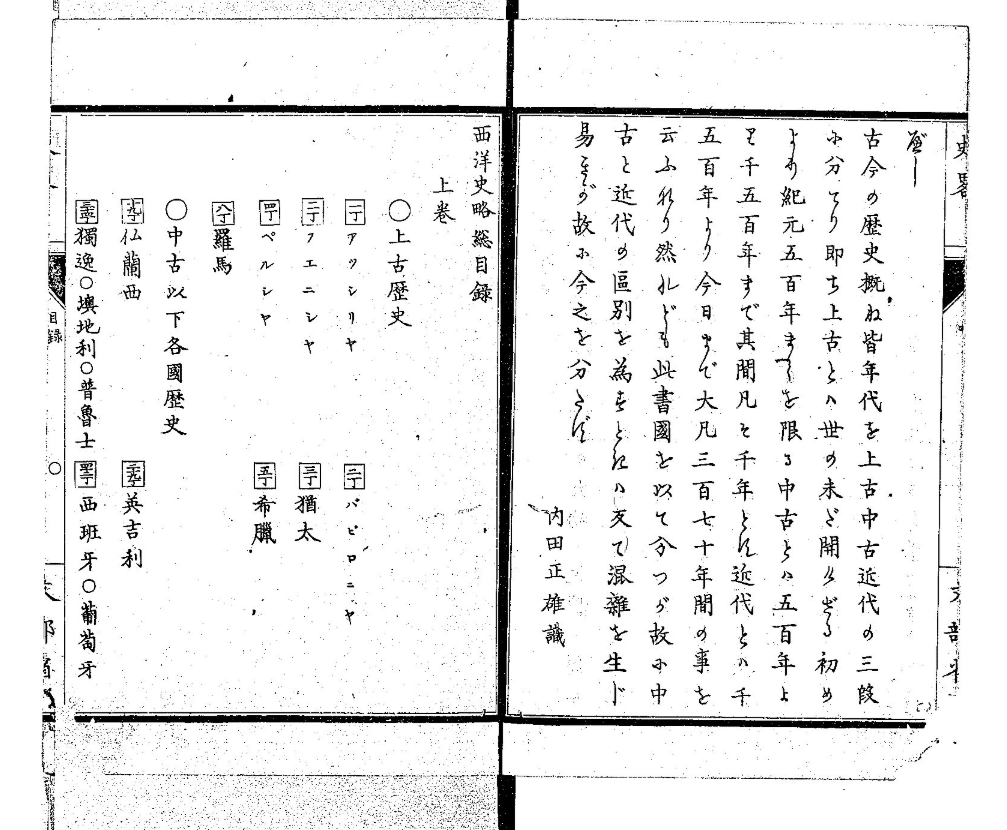 べし
古今の歴史概ね皆年代を上古中古近代の三段
に分てり即ち上古とハ世の未だ開けざる初め
より紀元五百年までを限る中古とハ五百年よ
り千五百年まで其間凡そ千年とす近代とハ千
五百年より今日まで大凡三百七十年間の事を
云ふなり然れども此書國を以て分つが故に中
古と近代の區別を為すときハ反て混雜を生ジ
易きが故に今之を分たず
内田正雄識
西洋史略総目録
上巻
〇上古歴史
一丁 アッシリヤ 二丁 バビロニヤ
二丁 フエニシヤ 三丁 猶太
四丁 ペルシヤ 五丁 希臘
八丁 羅馬
〇中古以下各國歴史
仏蘭西 英吉利
獨逸〇墺地利〇普魯士 西班牙〇葡萄牙
目録